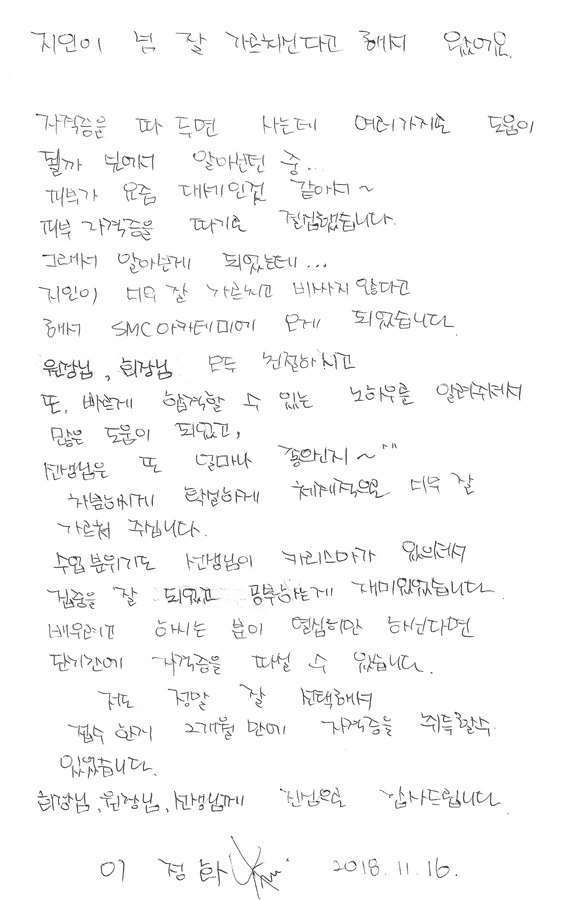 지인이 넘 잘 가르치신다고 해서 왔어요.
자격증을 따 두면 사는데 여러가지로 도움이
될까 싶어서 알아보던 중...
피부가 요즘 대세인것 같아서~
피부 자격증을 따기로 결심했습니다.
그래서 알아보게 되었는데...
지인이 너무 잘 가르치고 비싸지 않다고
해서 SMC아카데미에 오게 되었습니다.
원장님, 회장님 모두 친절하시고
또, 빠르게 합격할 수 있는 노하우를 알려주셔서
많은 도움이 되었고,
선생님은 또 얼마나 좋으신지~^^
차분하시게 확실하게 체계적으로 너무 잘
가르쳐 주십니다.
수업분위기도 선생님이 카리스마가 있으셔서
집중을 잘 되었고 공부하는게 재미있었습니다.
배우려고 하시는 분이 열심히만 하신다면
단기간에 자격증을 따실 수 있습니다.
저도 정말 잘 선택해서
접수 한지 2개월 만에 자격증을 취득할수
있었습니다.
회장님, 원장님, 선생님께 진심으로 감사드립니다.
이 정화 2018. 11. 16.